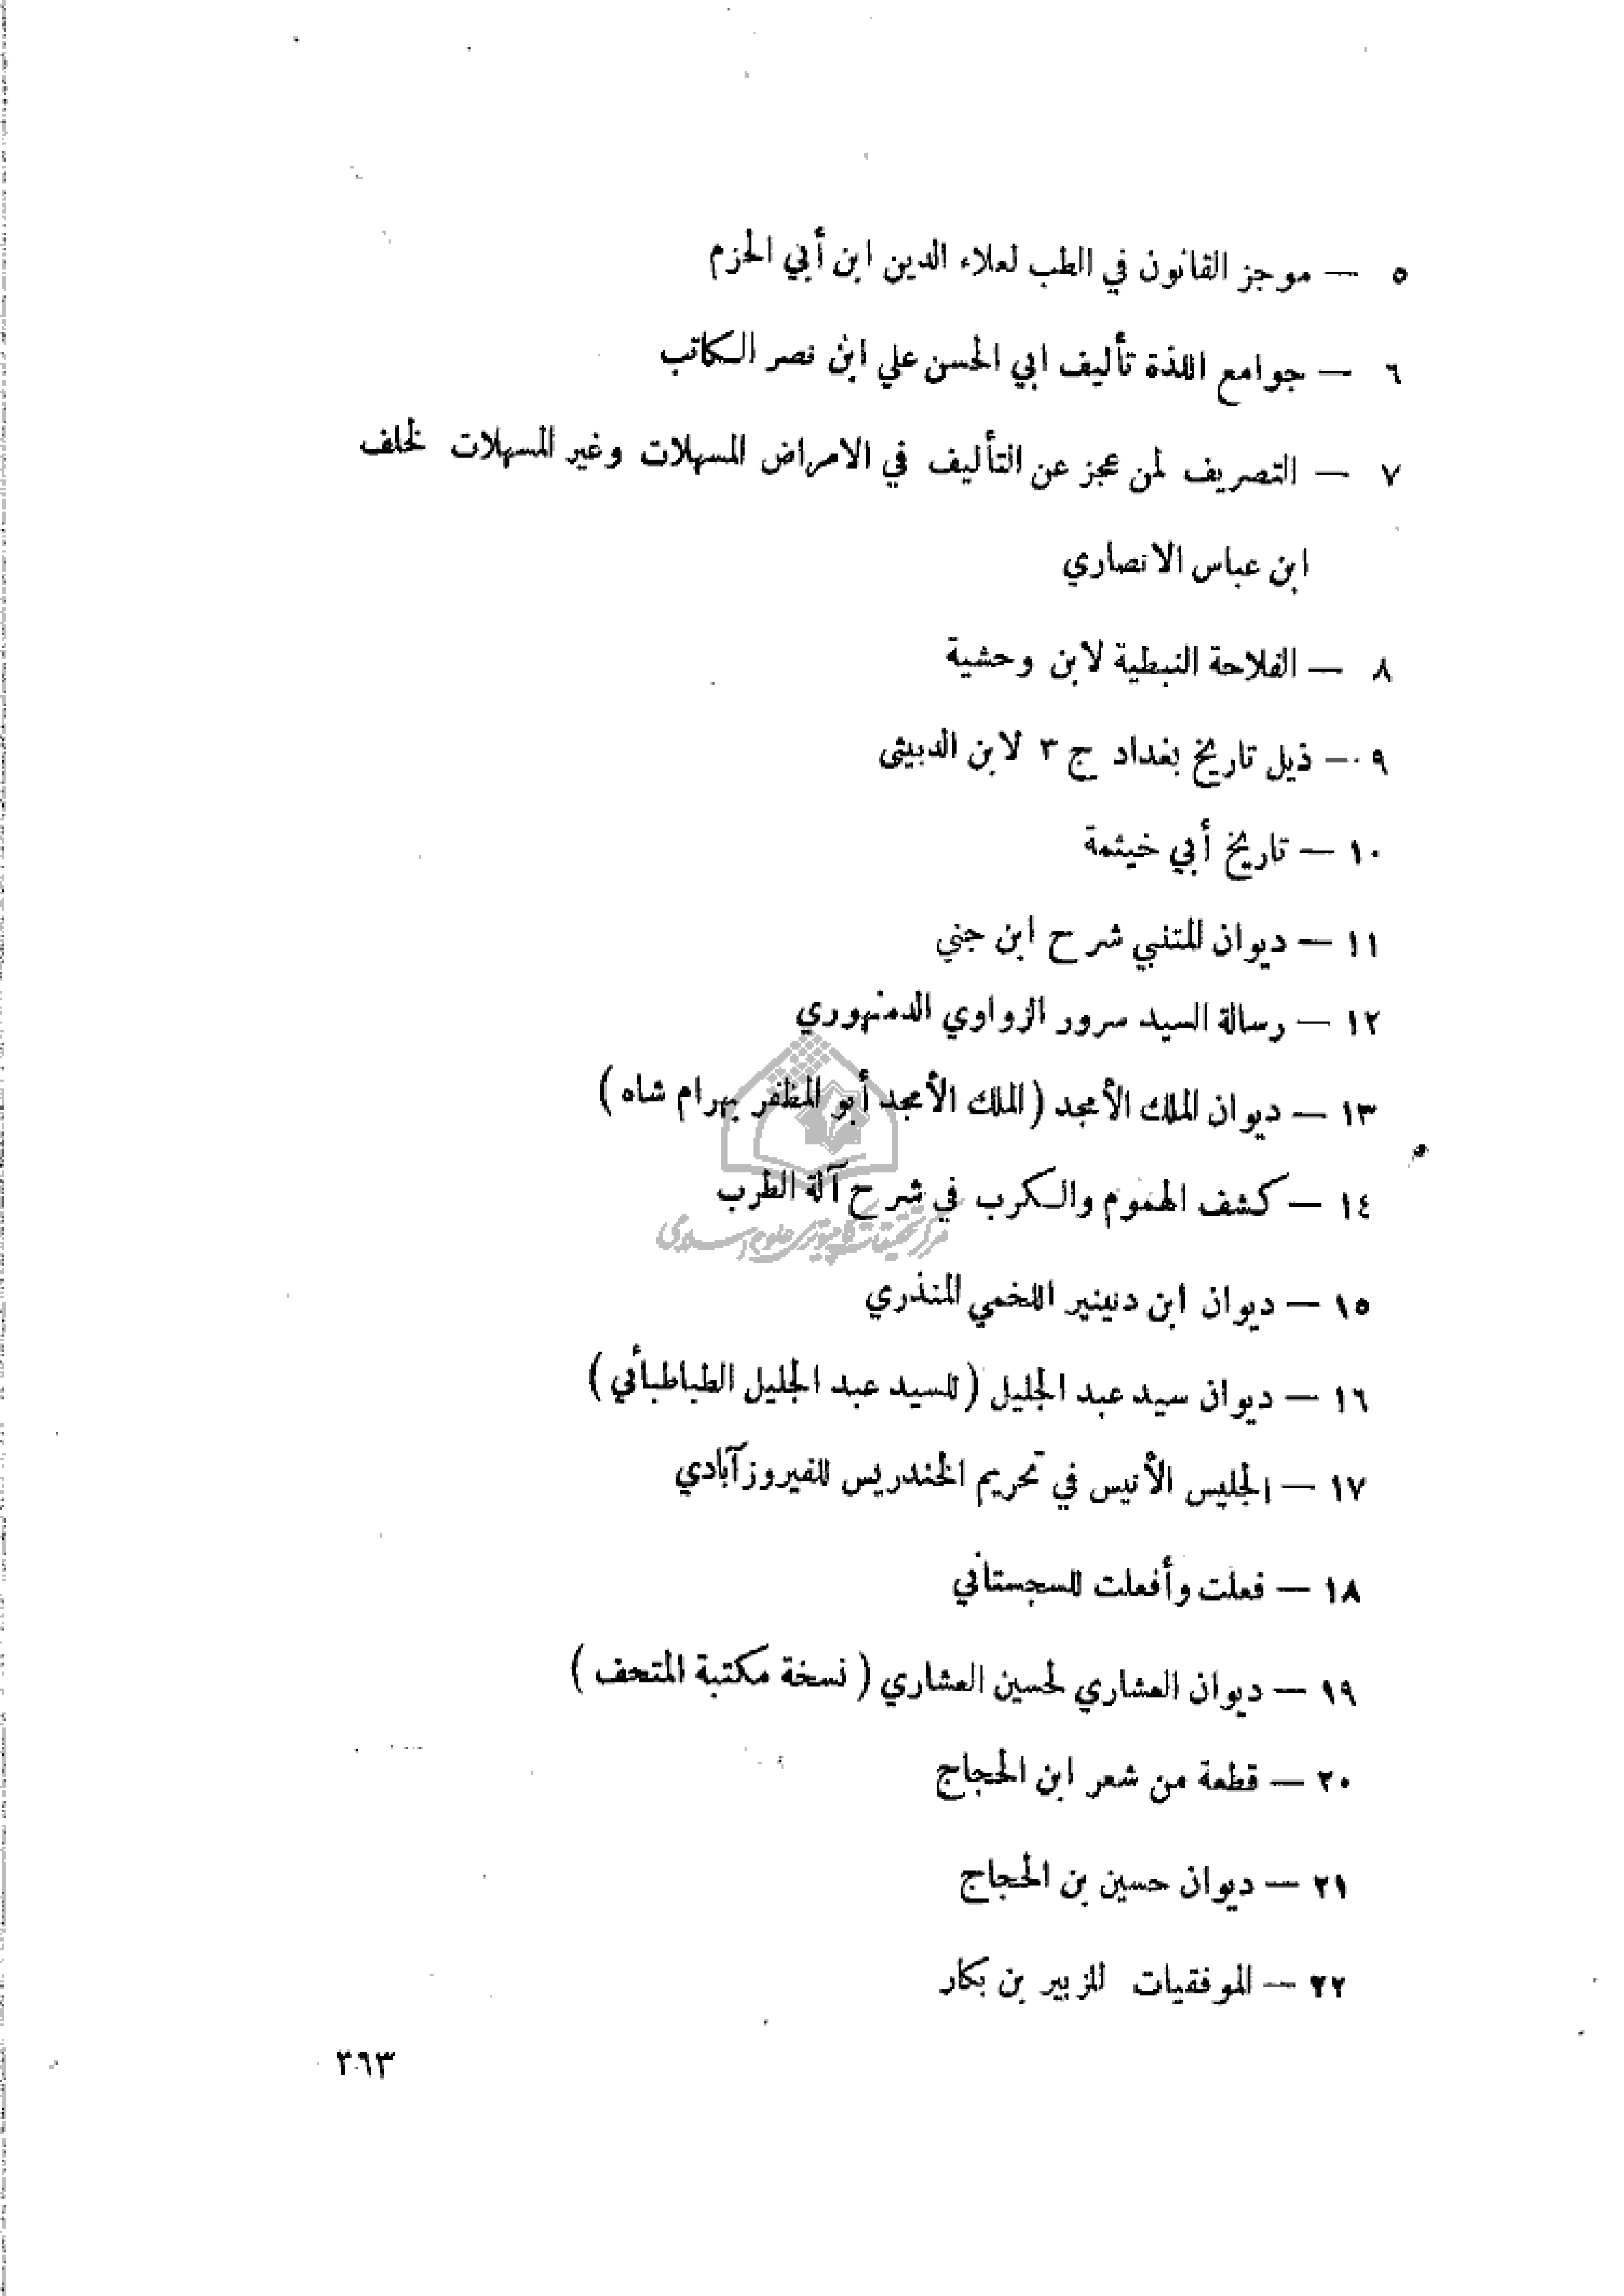 ٥ — موجز القانون في الطب لعلاء الدين ابن أبي الحزم
٦ — جوامع اللذة تأليف ابي الحسن علي ابن نصر الكاتب
٧ — التصريف لمن عجز عن التأليف في الامراض المسهلات وغير المسهلات لخلف
ابن عباس الانصاري
٨ — الفلاحة النبطية لابن وحشية
٩ — ذيل تاريخ بغداد ج ٣ لابن الدبيثى
١٠ — تاريخ أبي خيثمة
١١ — ديوان المتنبي شرح ابن جني
١٢ — رسالة السيد سرور الزواوي الدمنهوري
١٣ — ديوان الملك الأمجد (الملك الأمجد أبو المظفر بهرام شاه)
١٤ — كشف الهموم والكرب في شرح آلة الطرب
مركز تحقيقات كامپيوترى علوم اسلامى
١٥ — ديوان ابن دنينير اللخمي المنذري
١٦ — ديوان سيد عبد الجليل (للسيد عبد الجليل الطباطبأئي)
١٧ — الجليس الأنيس في تحريم الخندريس للفيروزآبادي
١٨ — فعلت وأفعلت للسجستاني
١٩ — ديوان العشاري لحسين العشاري ( نسخة مكتبة المتحف )
٢٠ — قطعة من شعر ابن الحجاج
٢١ — ديوان حسين بن الحجاج
٢٢ — الموفقيات للزبير بن بكار
٢٦٣